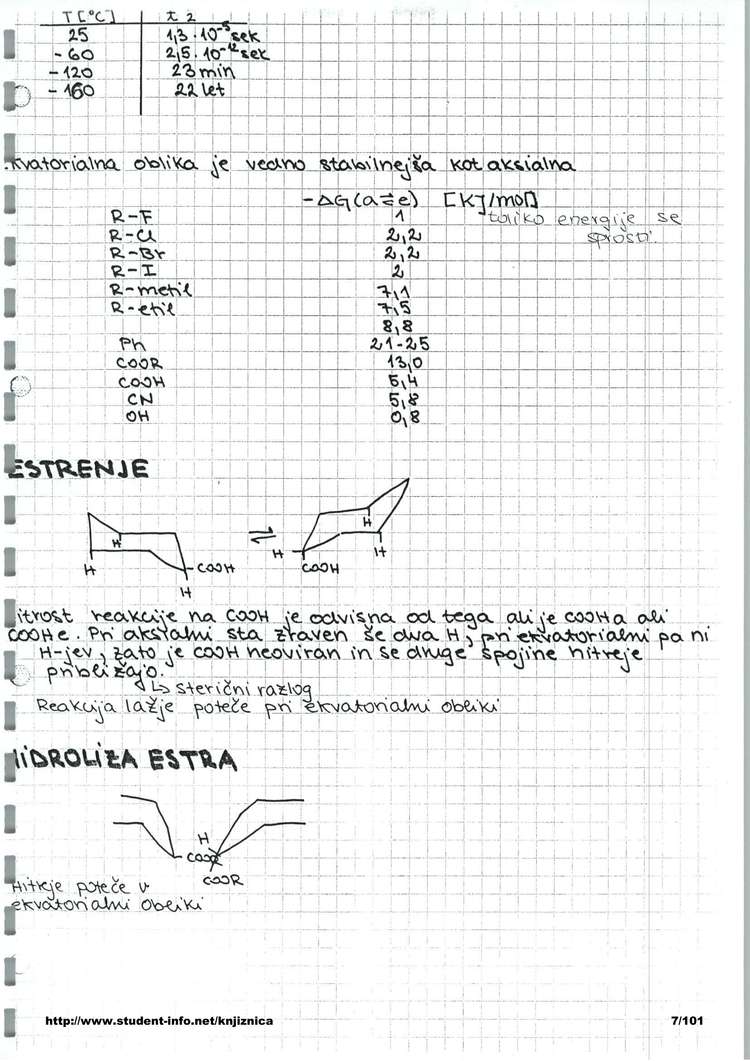 T [°C] t 2
25 1,3 · 10⁻⁵ sek
- 60 2,5 · 10⁻¹² sek
- 120 23 min
- 160 22 let
kvatorialna oblika je vedno stabilnejša kot aksialna
-ΔG (a⇌e) [KJ/mol]
R-F 1 toliko energije se
R-Cl 2,2 sprosti.
R-Br 2,2
R-I 2
R-metil 7,1
R-etil 7,5
8,8
Ph 21-25
COOR 13,0
COOH 5,4
CN 5,8
OH 0,8
ESTRENJE
H H COOH H
⇌
H H H COOH
itrost reakcije na COOH je odvisna od tega ali je COOH a ali
COOH e. Pri aksialni sta zraven še dva H, pri ekvatorialni pa ni
H-jev, zato je COOH neoviran in se druge spojine hitreje
približajo.
↳ sterični razlog
Reakcija lažje poteče pri ekvatorialni obliki
HIDROLIZA ESTRA
H
COOR
COOR
Hitreje poteče v
ekvatorialni obliki
http://www.student-info.net/knjiznica 7/101